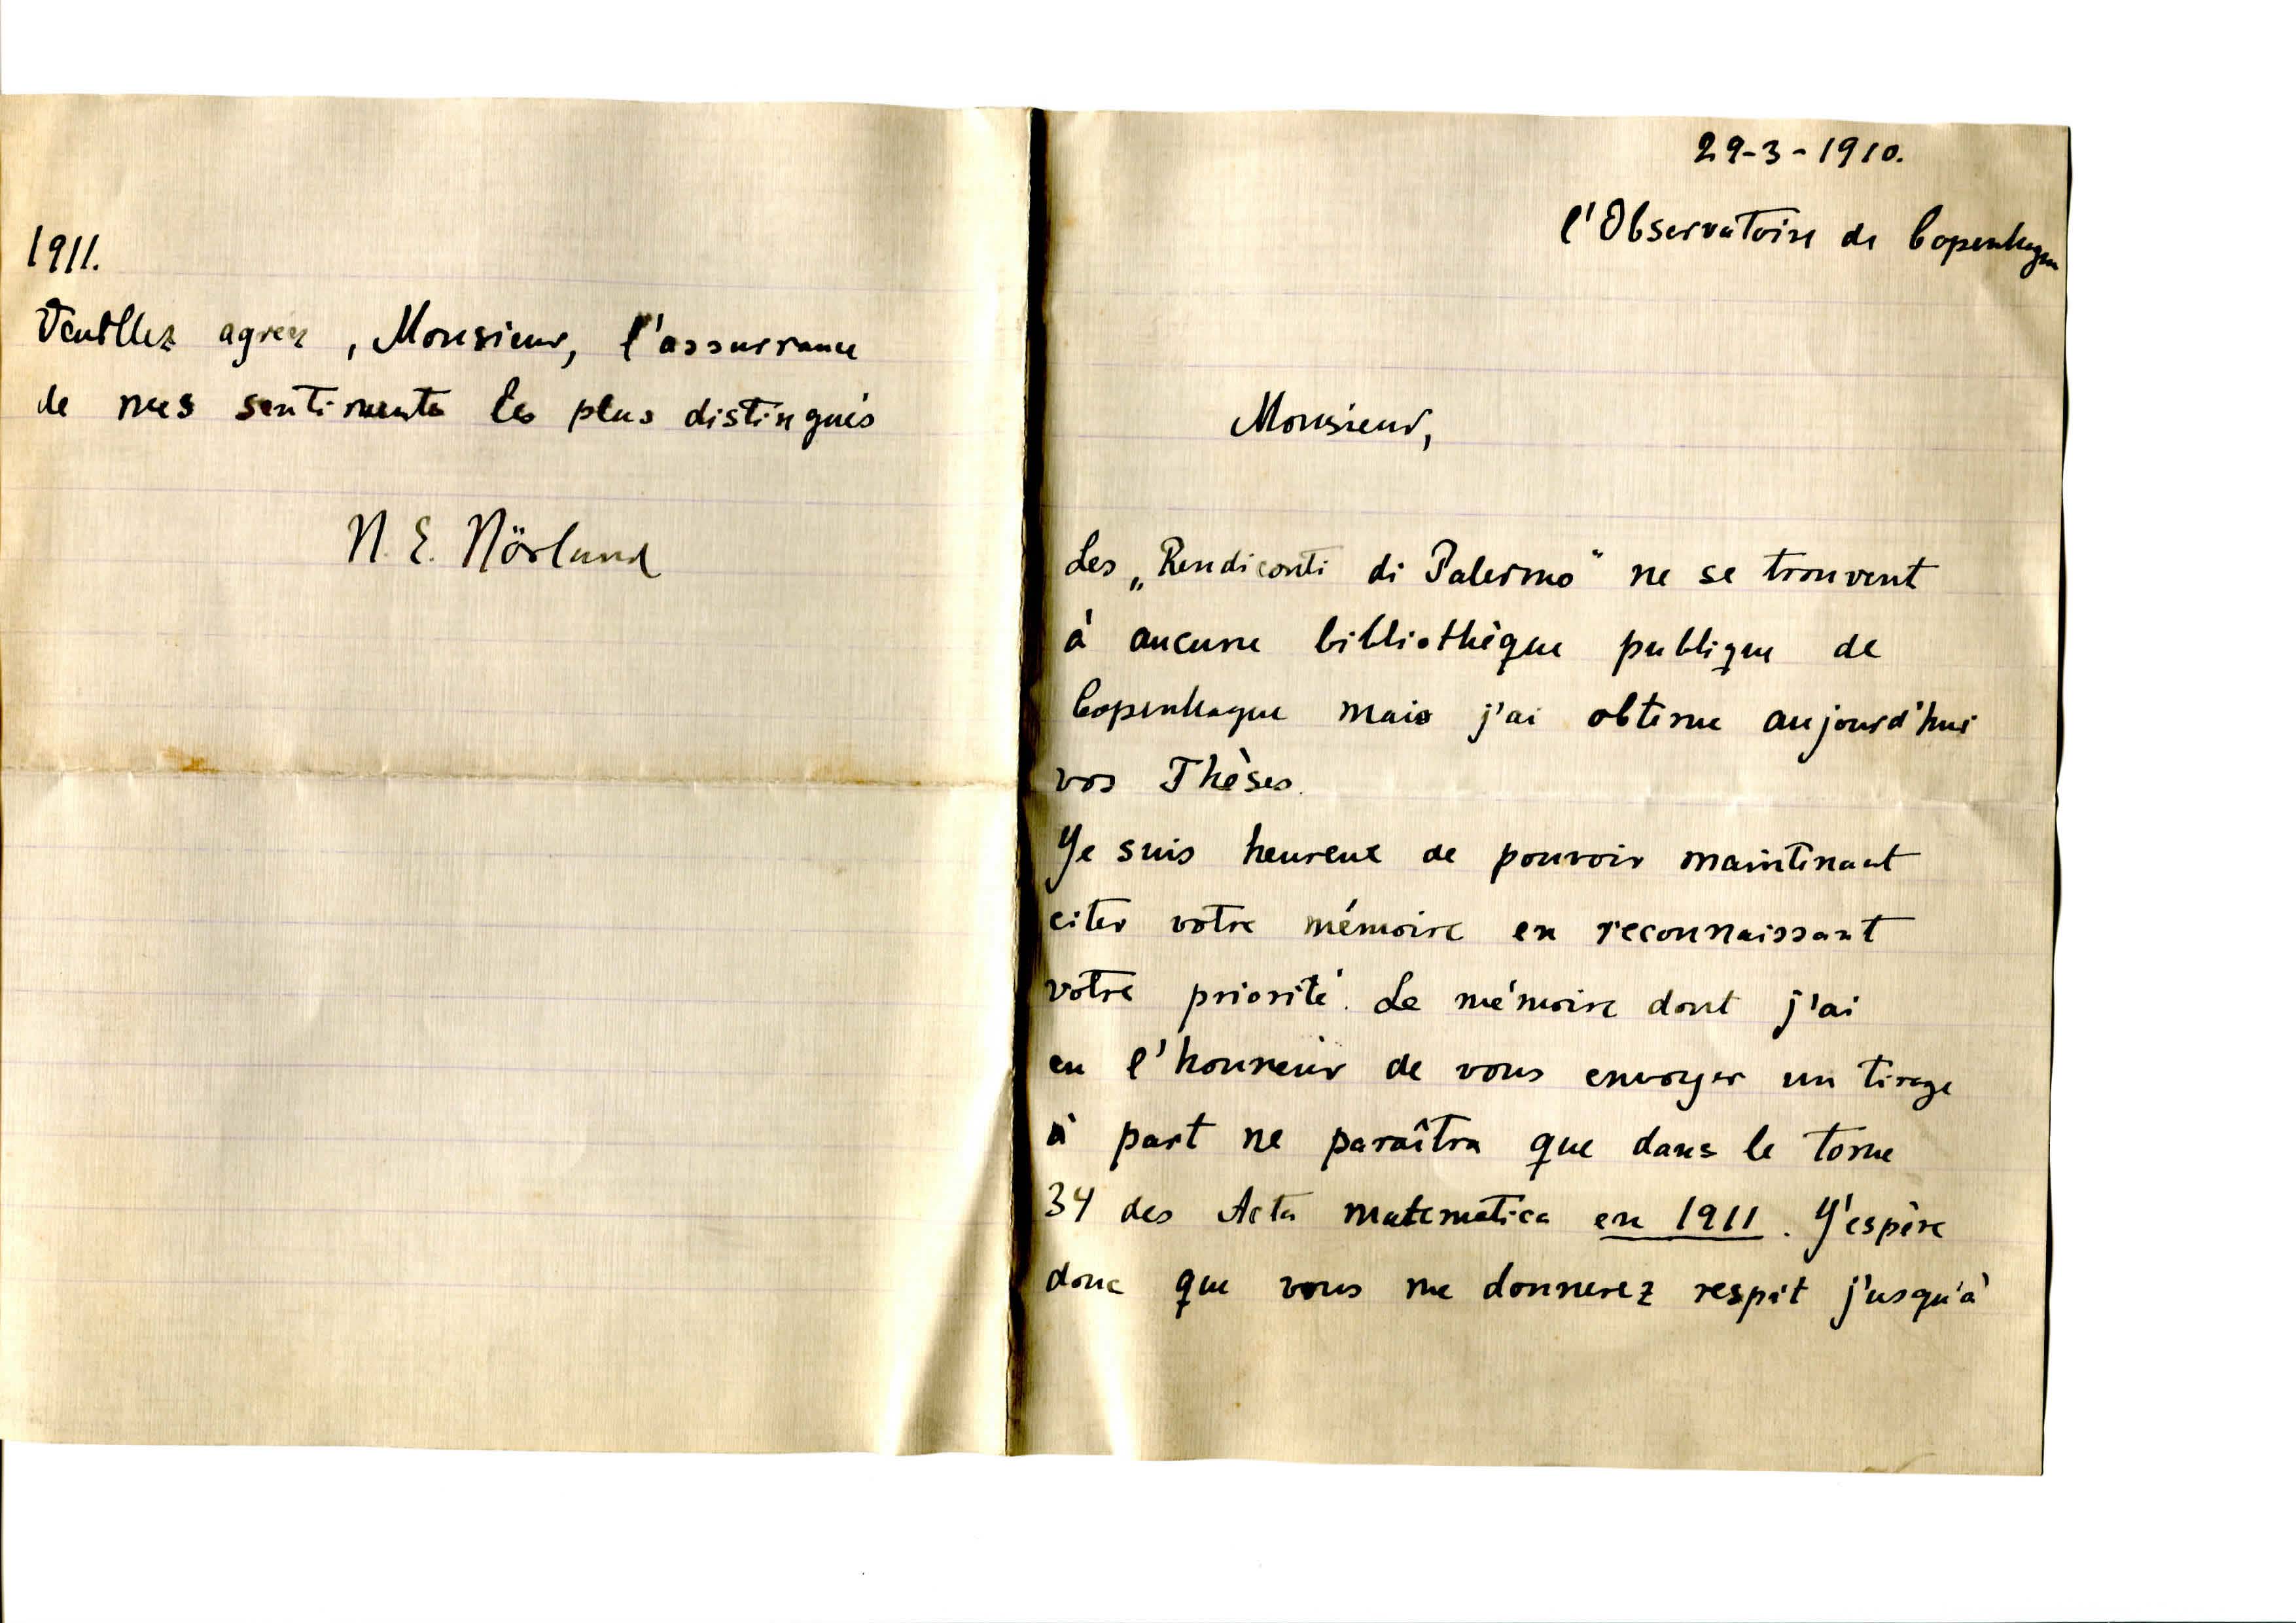 29-3-1910.
l'Observatoire de Copenhagen
Monsieur,
Les „Rendiconti di Palermo" ne se trouvent
à aucune bibliothèque publique de
Copenhague mais j'ai obtenu aujourd'hui
vos Thèses.
Je suis heureux de pouvoir maintenant
citer votre mémoire en reconnaissant
votre priorité. Le mémoire dont j'ai
eu l'honneur de vous envoyer un tirage
à part ne paraîtra que dans le tome
34 des Acta matematica en 1911. J'espère
donc que vous me donnerez respit j'usqu'à
1911.
Veuillez agréer, Monsieur, l'assurrance
de mes sentiments les plus distingués
N. E. Nörlund